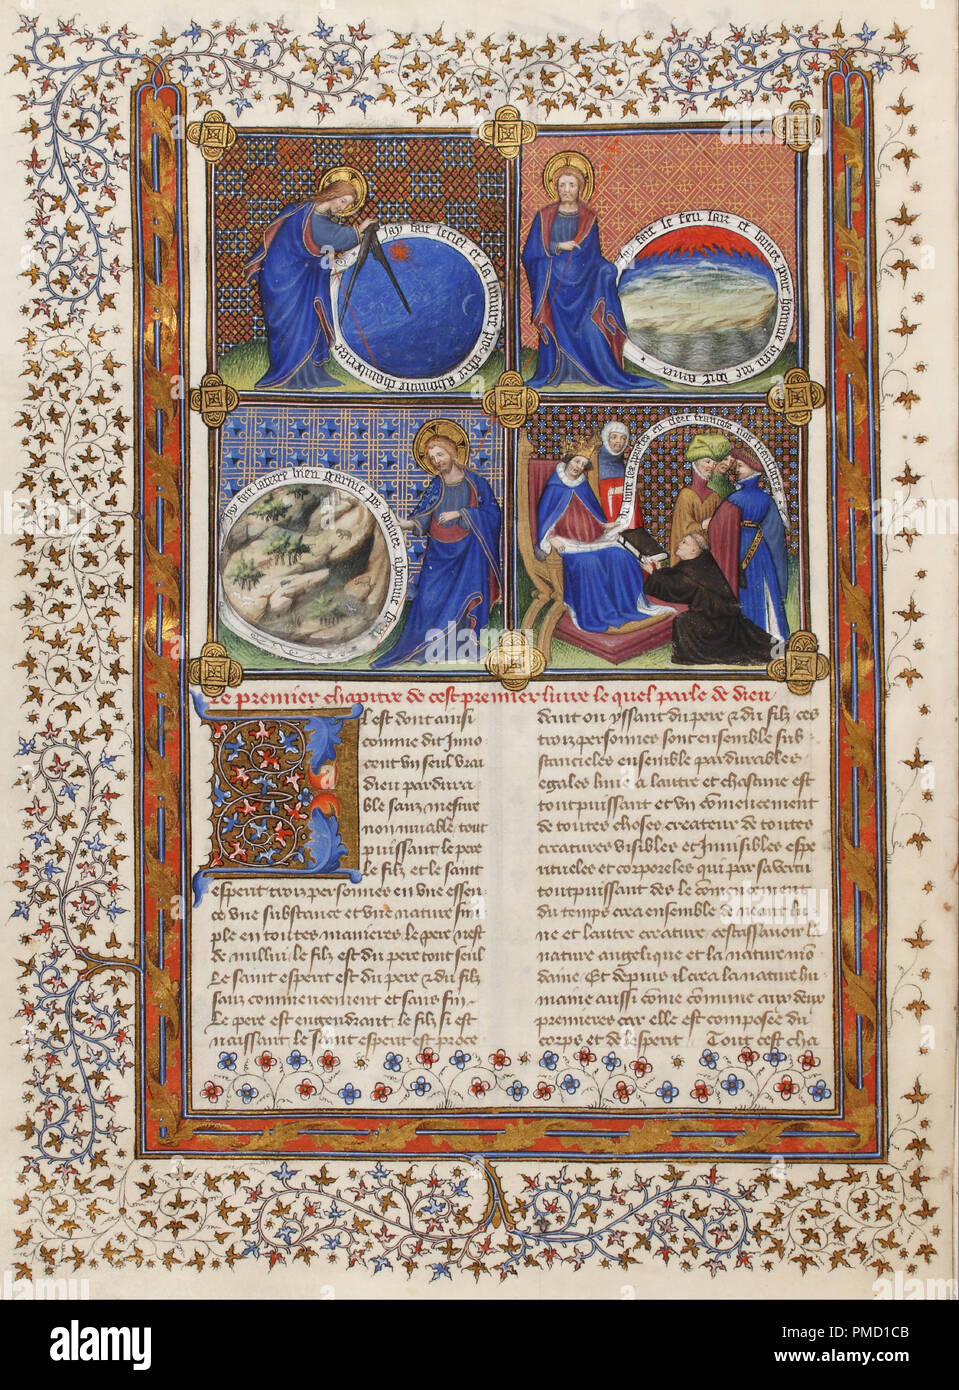 Jay fait le ciel et la lumiere por estre a homme chandeliere
Jay fait le feu lair et lautre por homme
Jay fait la terre bien garnie por
en dort francois
Le premier chapitre de cest premier livre le quel parle de dieu
Il est dont ainsi
comme dit Inno
cent un seul vrai
dieu pardura
ble sanz mesure
non muable tout
puissant le pere
le filz et le saint
esperit troiz personnes en une essen
ce une substance et une nature sim
ple en toutes manieres. le pere nest
de nullui. le filz est du pere tout seul
Le saint esperit est du pere & du filz
sanz commencement et sans fin.
Le pere est engendrant. le filz si est
naissant. le saint esperit est proce
dent ou yssant du pere & du filz. ces
troiz personnes sont ensemble sub
stancieles ensemble pardurables
egales lune a lautre et chascune est
tout puissant et un commencement
de toutes choses. createur de toutes
creatures visibles et Invisibles espi
rituelles et corporeles qui par sa vertu
tout puissant des le commencement
du temps crea ensemble de neant lu
ne et lautre creature. cestassavoir la
nature angelique et la nature mon
daine. Et depuis il crea la nature hu
maine aussi comme commune aux deux
premieres car elle est composee du
corps et de lesperit Tout cest cha
alamy
alamy
Image ID: PMD1CB
www.alamy.com